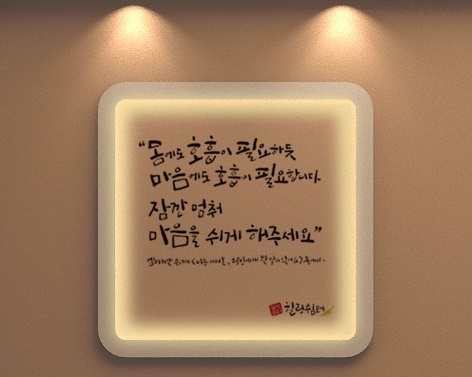 “몸에도 호흡이 필요하듯
마음에도 호흡이 필요합니다.
잠깐 멈춰
마음을 쉬게 해주세요”
힐링쉼터